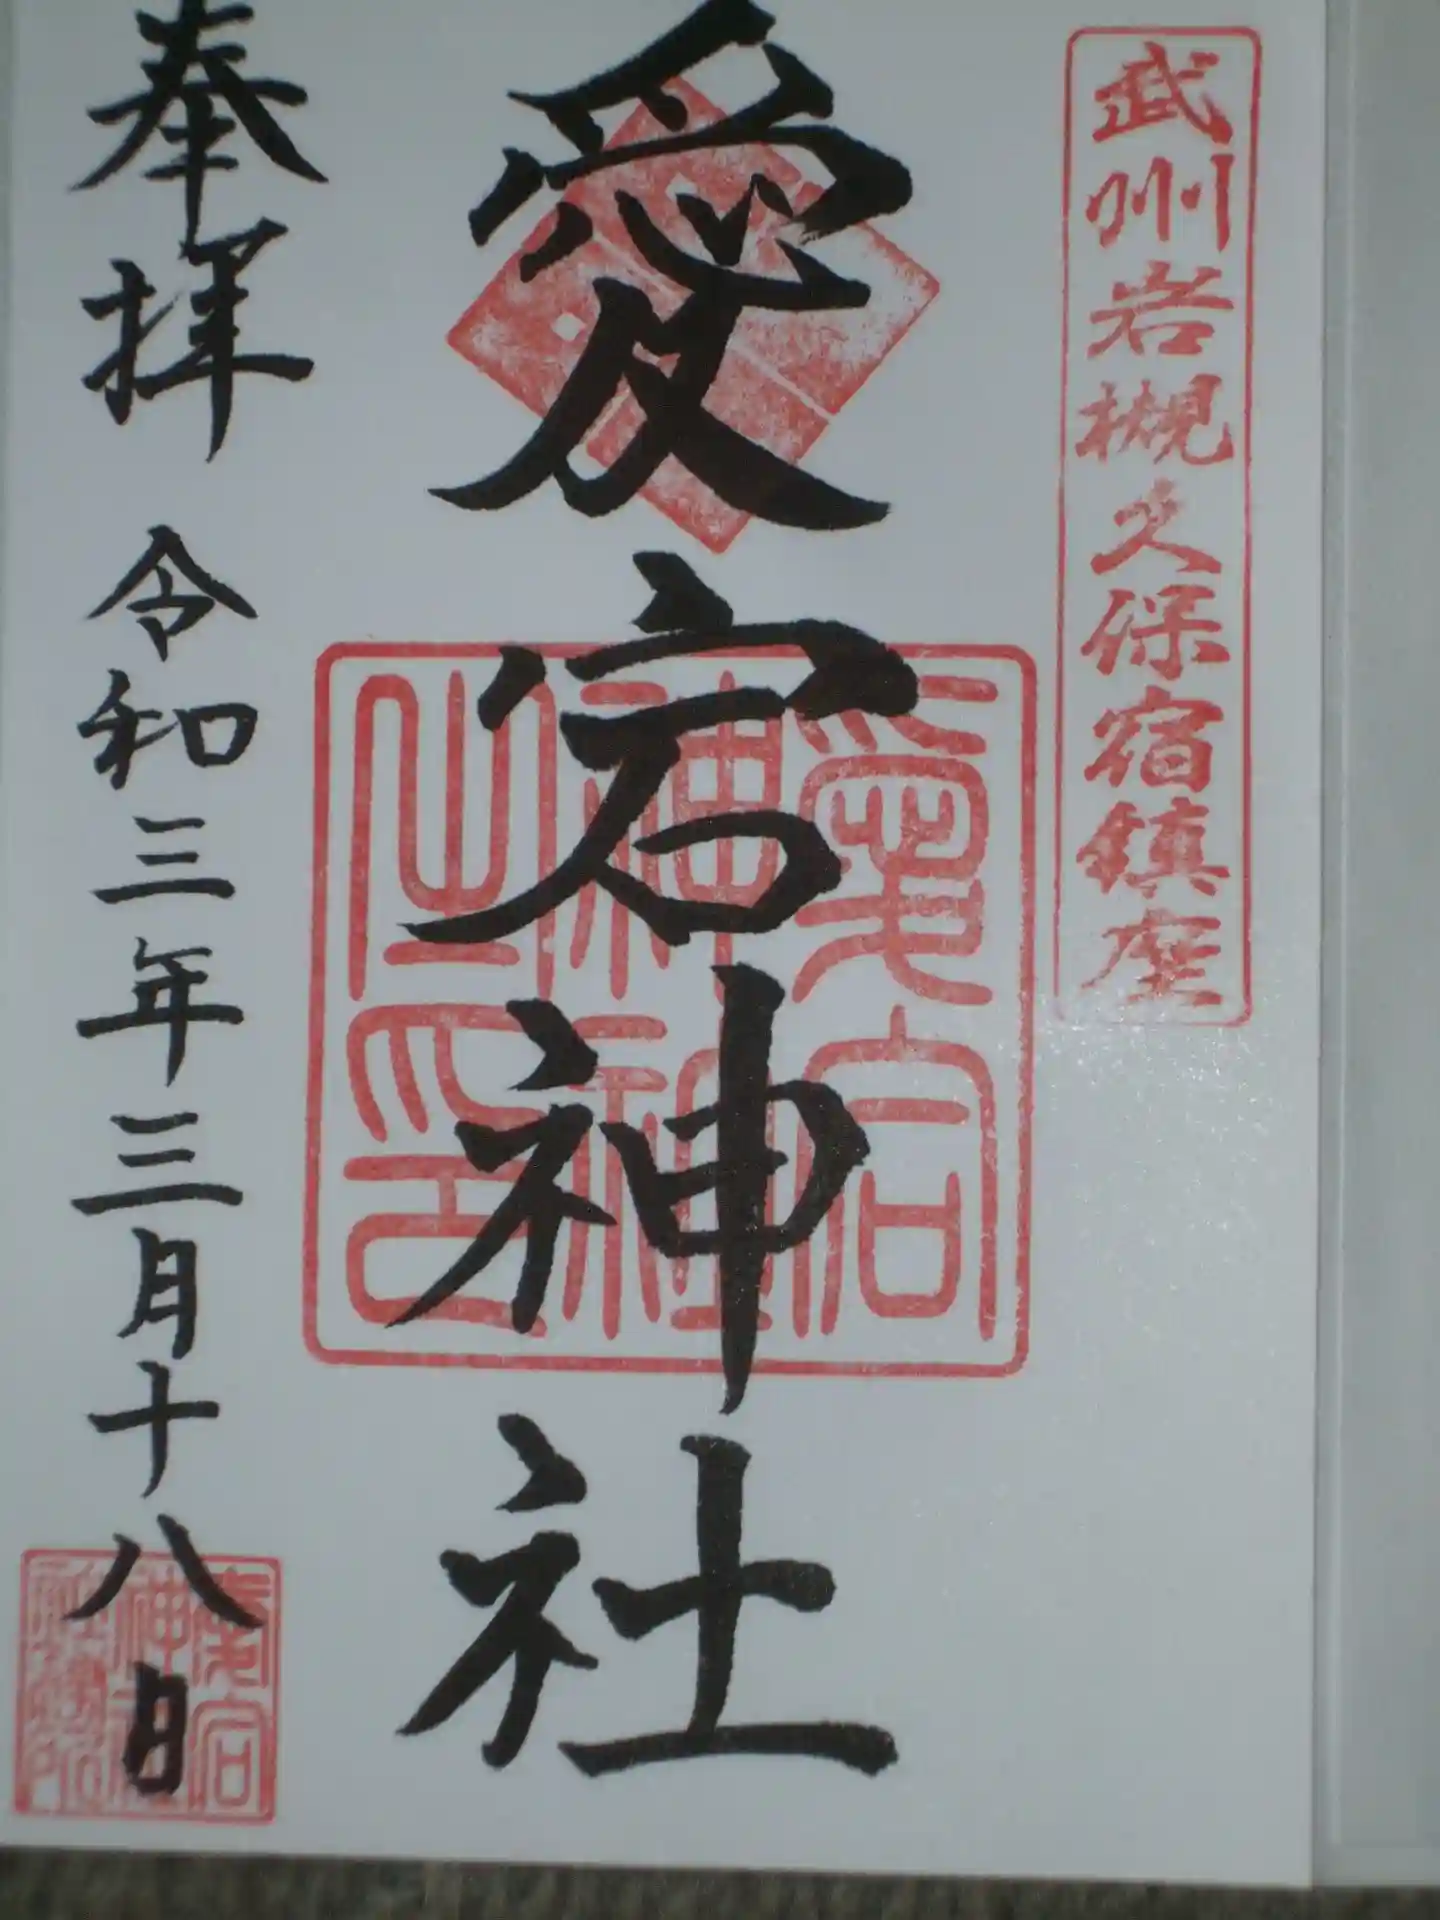 武州岩槻久保宿鎮座
愛宕神社
愛宕神社之印
奉拝 令和三年三月十八日